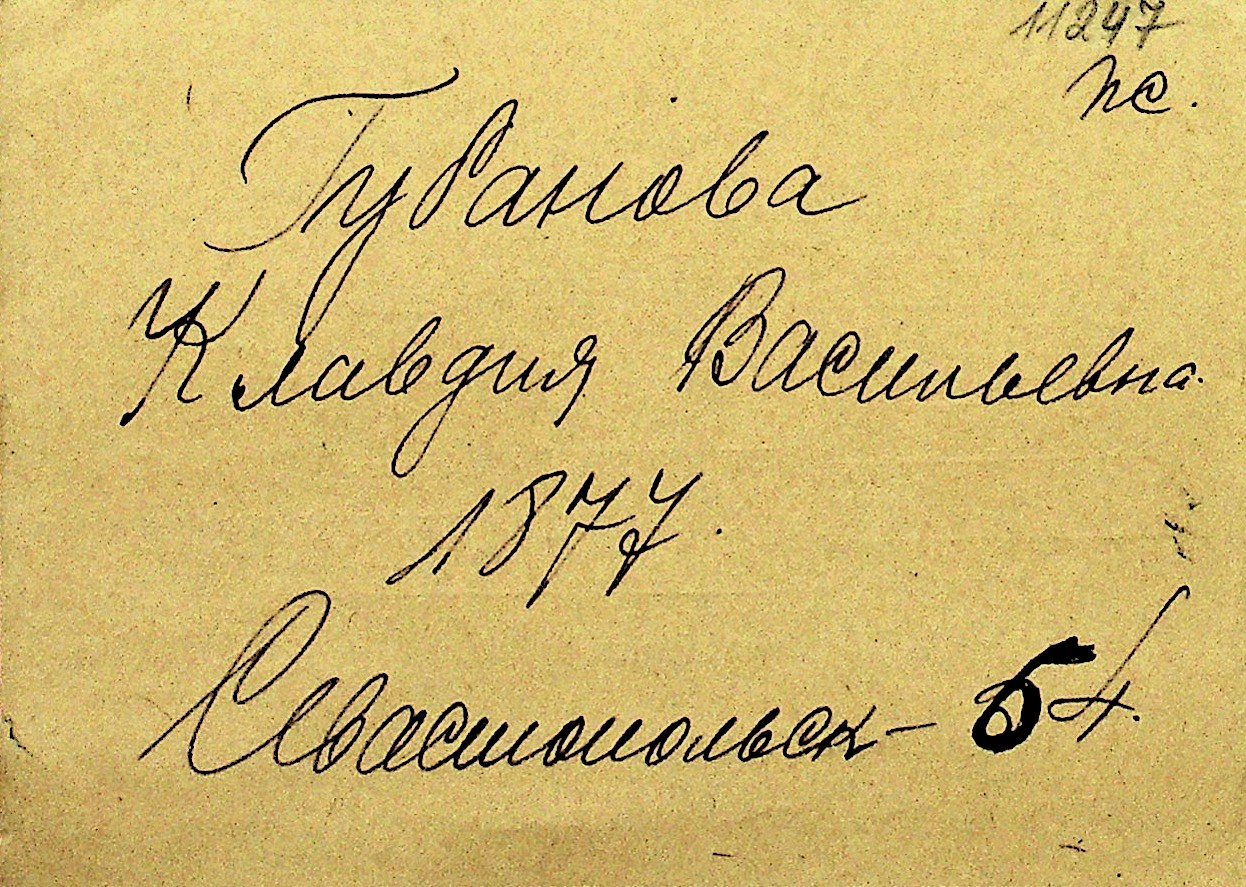 11247
пс.
Губанова
Клавдия Васильевна.
1877.
Севастопольск – 54.